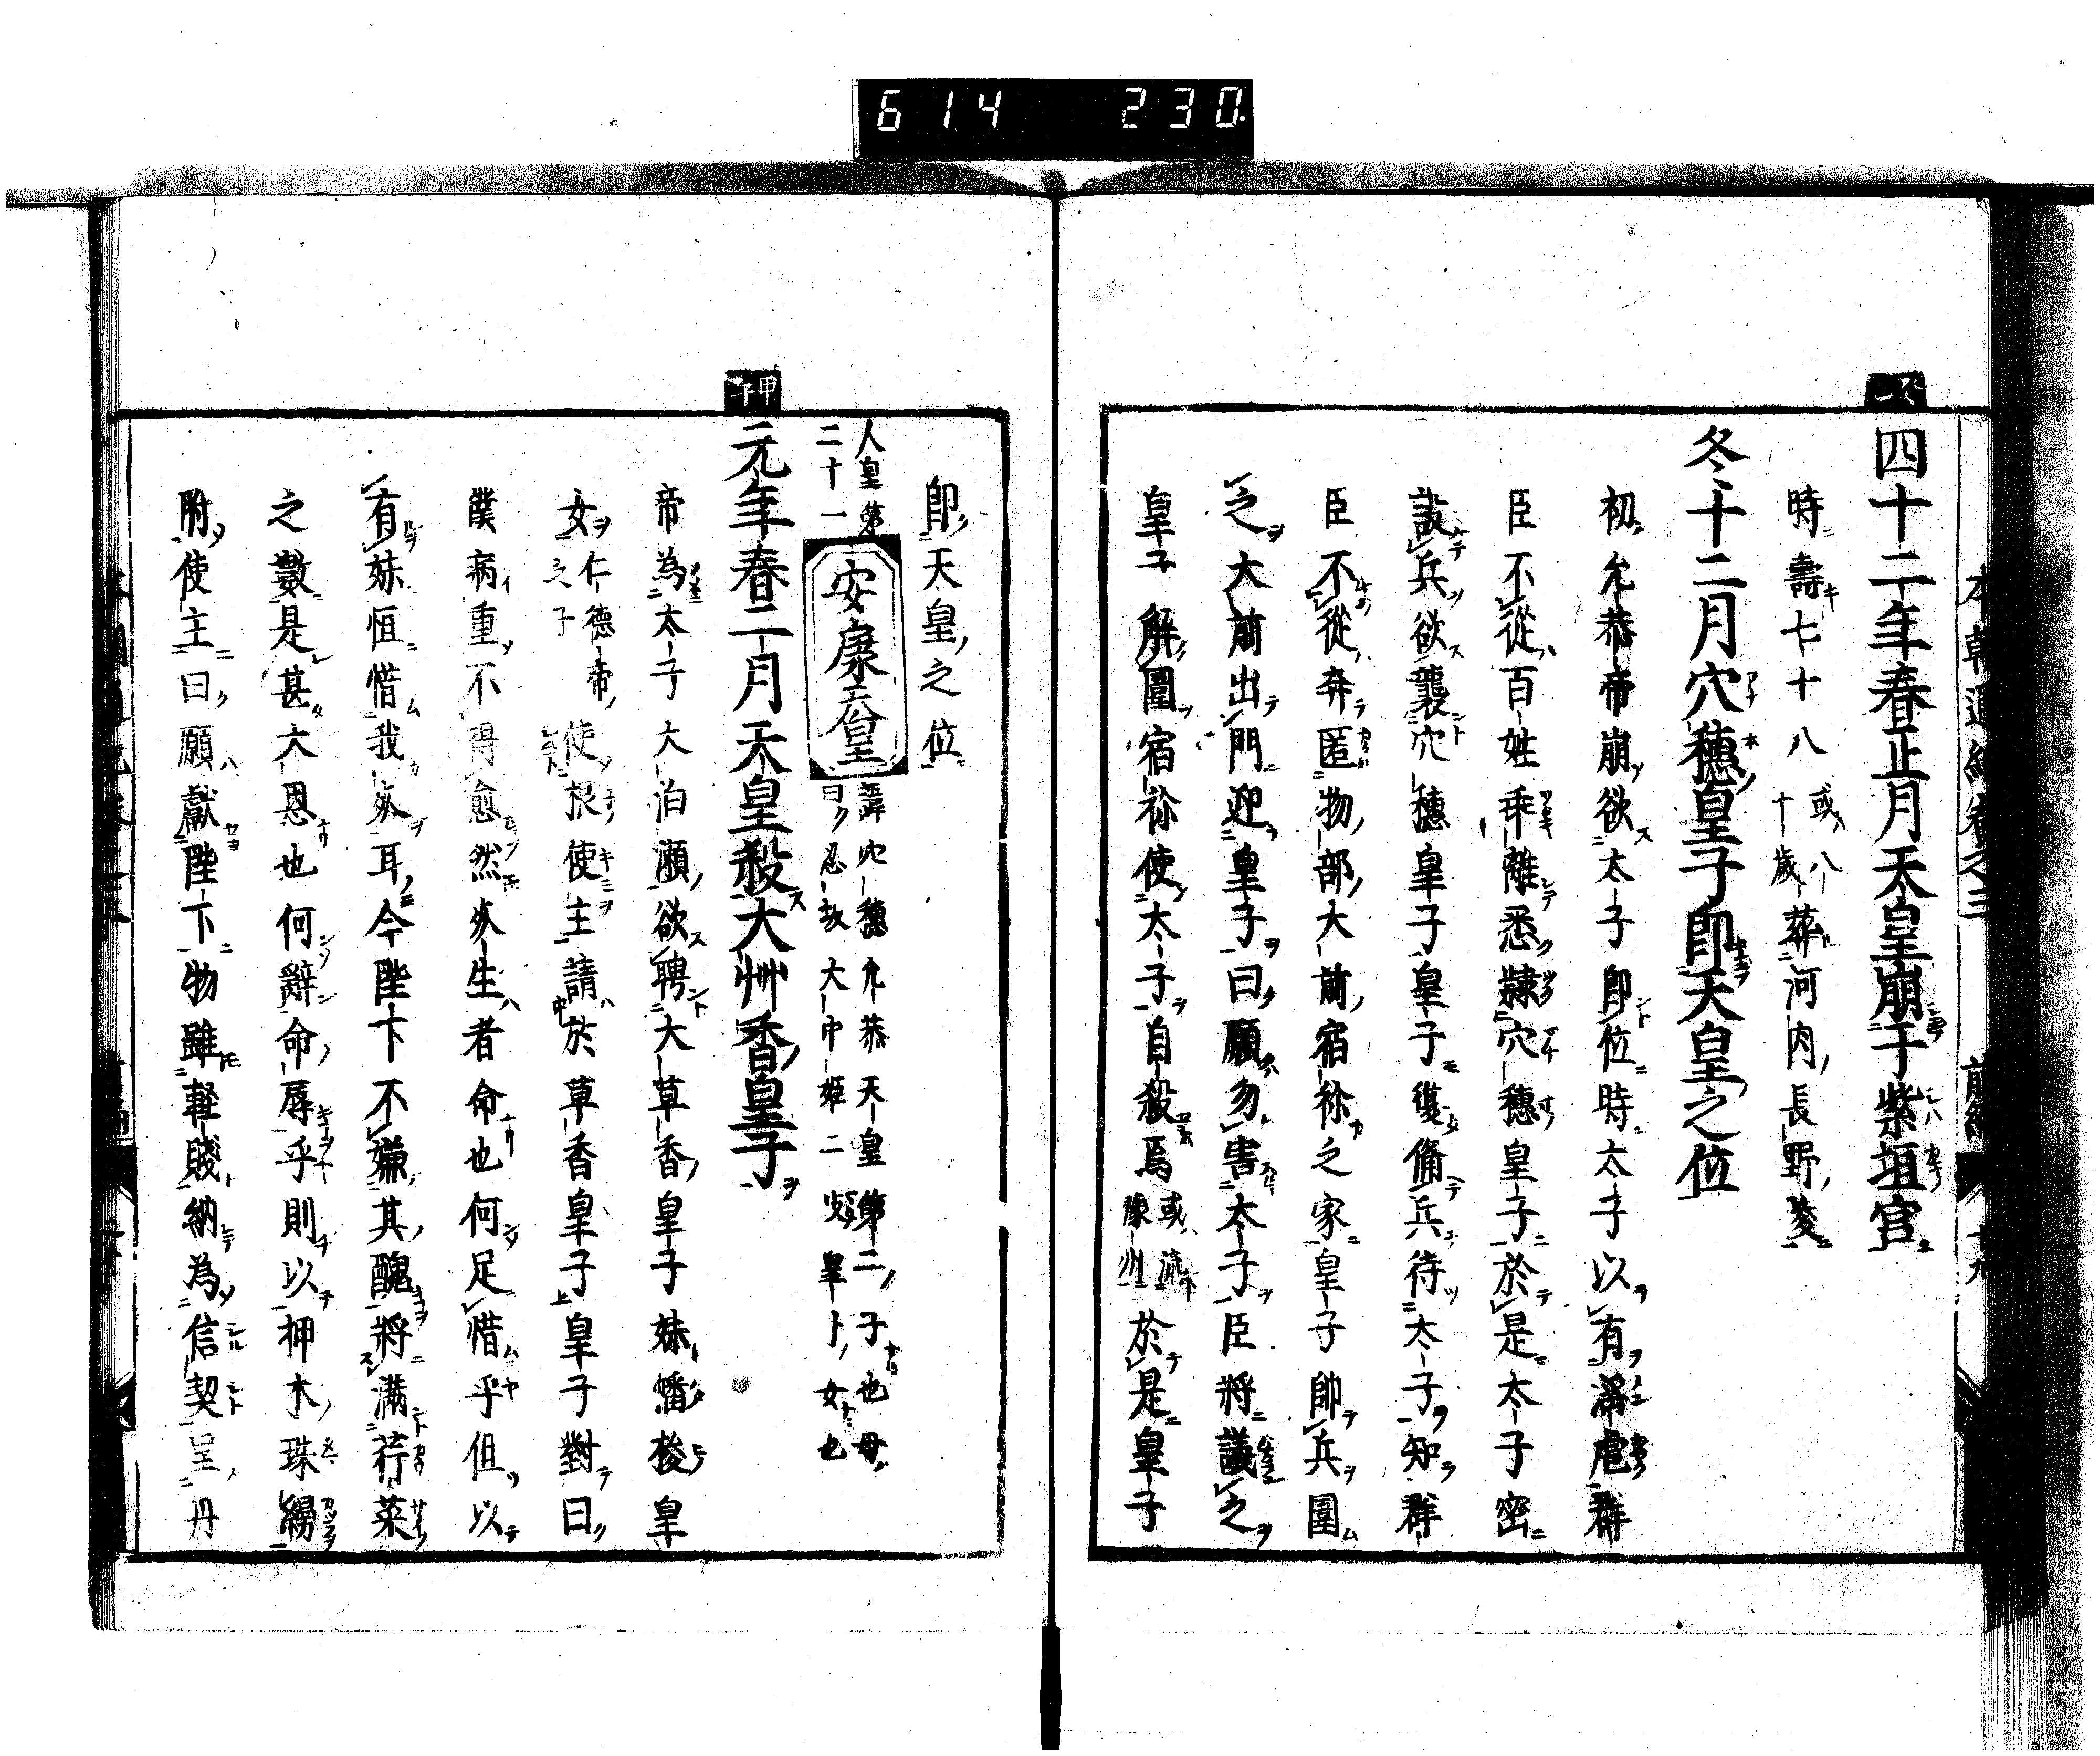 614 230
四十二年春正月天皇崩于紫垣宮
時壽七十八或八十歲葬河内長野陵
冬十二月穴穗皇子即天皇之位
初允恭帝崩欲太子即位時太子以有淫虐群
臣不從百姓乖離悉隸穴穗皇子於是太子密
設兵欲襲穴穗皇子皇子復備兵待太子知群
臣不從奔匿物部大前宿祢之家皇子帥兵圍
之大前出門迎皇子曰願勿害太子臣將議之
皇子解圍宿祢使太子自殺焉或流豫州於是皇子
即天皇之位
甲午
人皇第二十一
安康天皇
諱穴穗允恭天皇第二子也母曰忍坂大中姫二岐皇卜女也
元年春二月天皇殺大草香皇子
帝為太子大泊瀬欲聘大草香皇子妹幡梭皇
女仁德帝之子使根使主請於草香皇子皇子對曰
僕病重不得愈然死生者命也何足惜乎但以
有妹恒惜我死耳今陛下不嫌其醜將滿荇菜
之數是甚大恩也何辭命辱乎則以押木珠縵
附使主曰願獻陛下物雖軽賤納為信契呈丹